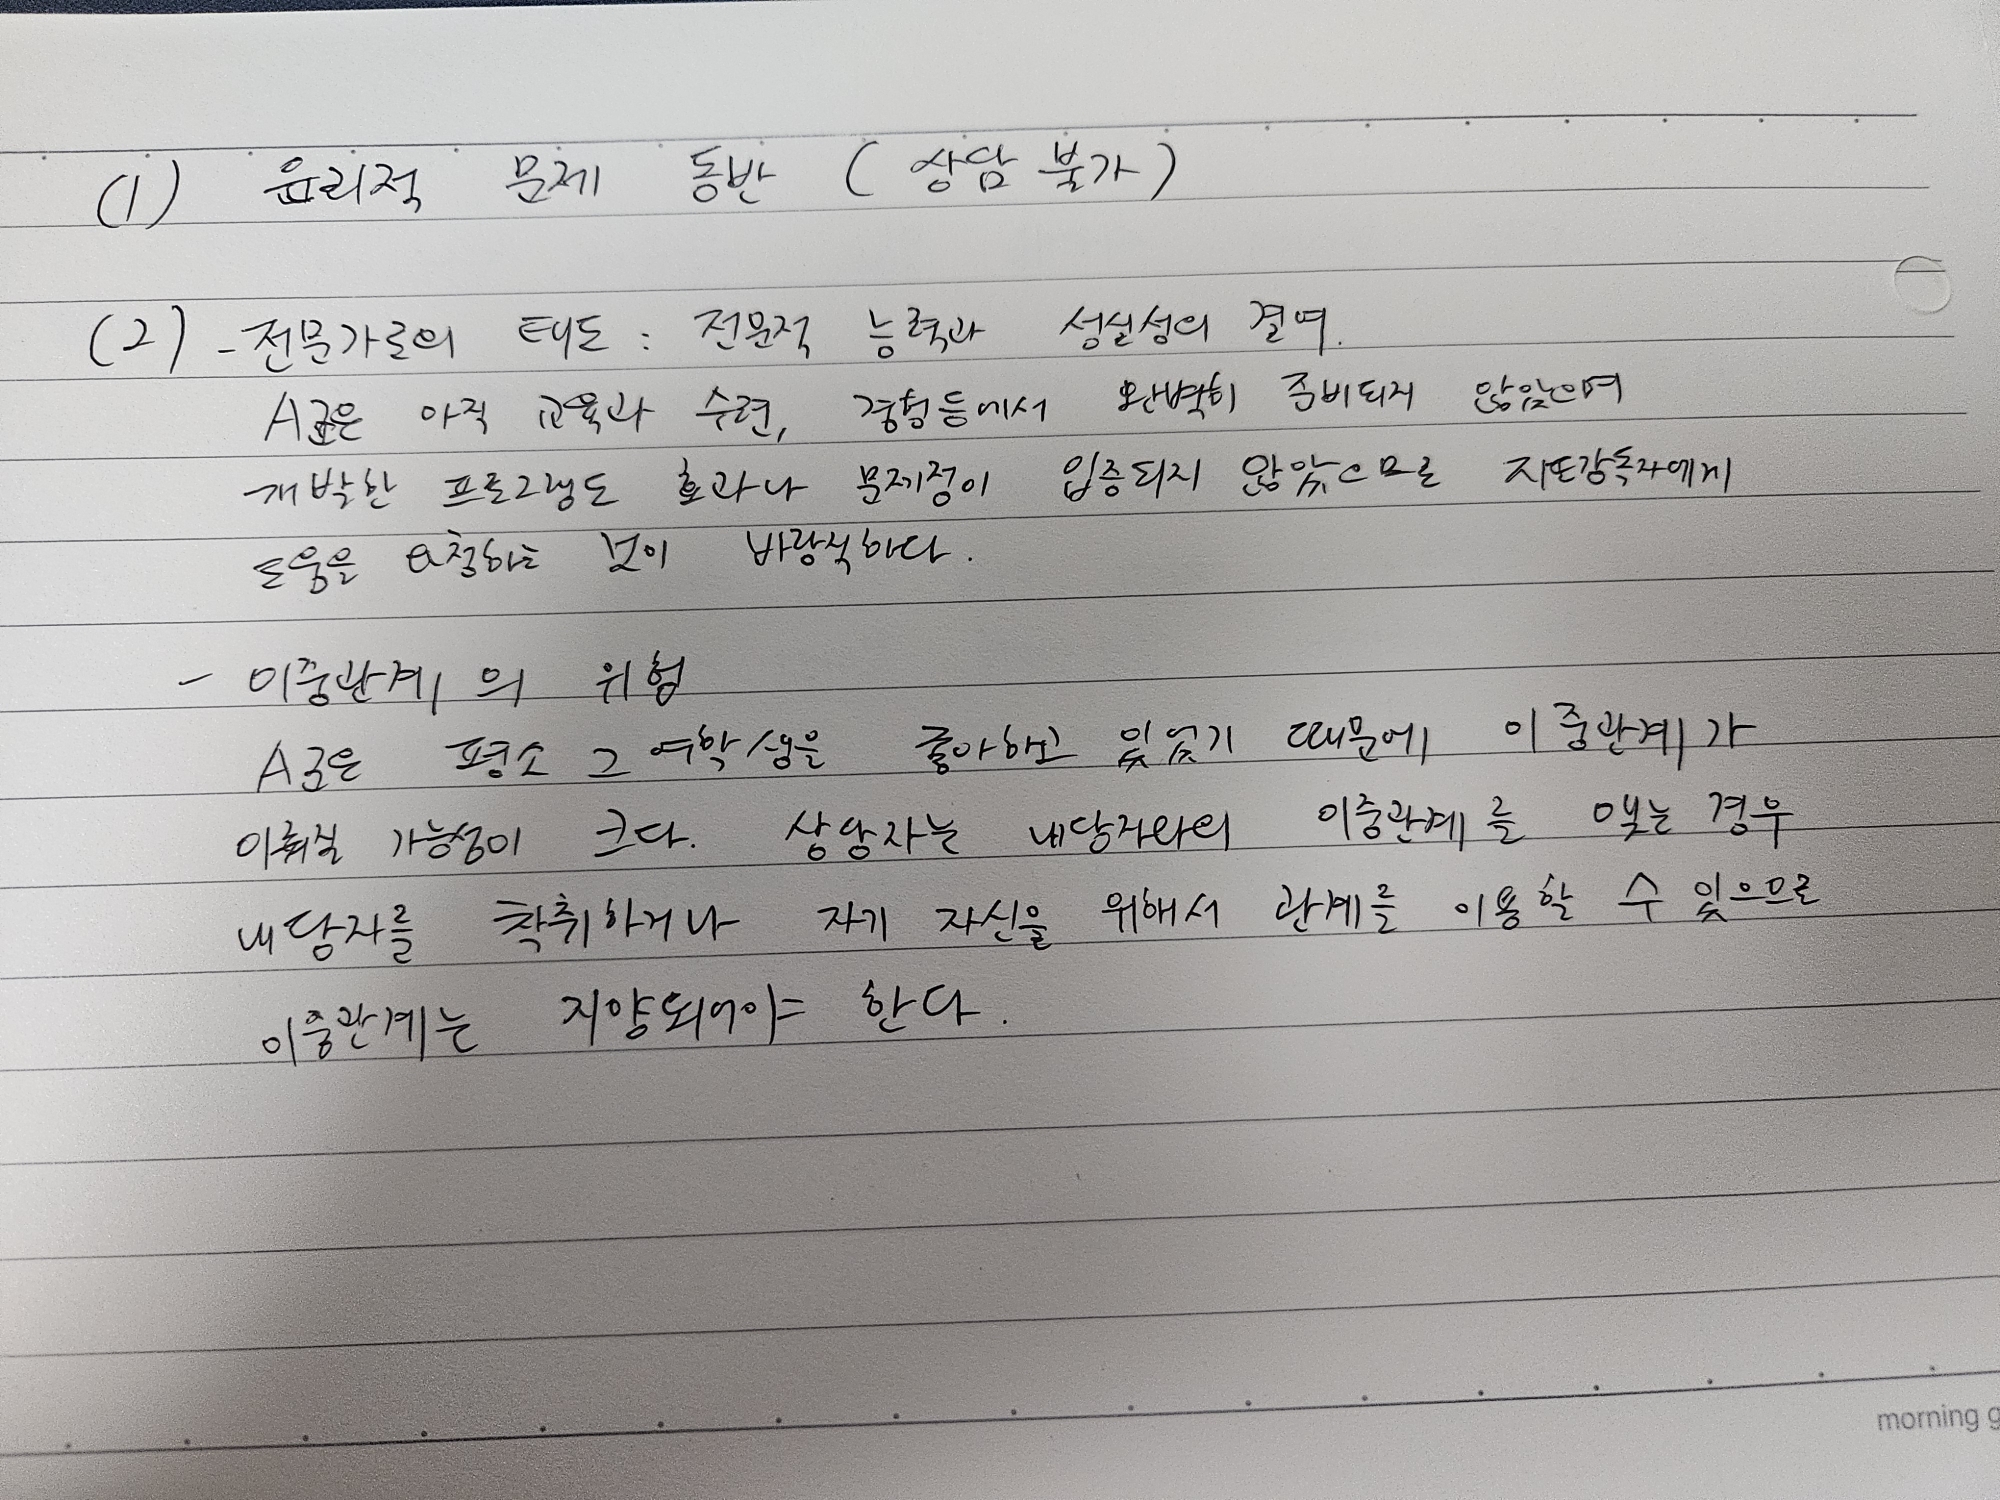 (1) 윤리적 문제 동반 (상담 불가)
(2) - 전문가로의 태도 : 전문적 능력과 성실성의 결여.
A군은 아직 교육과 수련, 경험등에서 완벽히 준비되지 않았으며
개발한 프로그램도 효과나 문제점이 입증되지 않았으므로 지도감독자에게
도움을 요청하는 것이 바람직하다.
- 이중관계의 위험
A군은 평소 그 여학생을 좋아하고 있었기 때문에 이중관계가
이뤄질 가능성이 크다. 상담자는 내담자와의 이중관계를 맺는 경우
내담자를 착취하거나 자기 자신을 위해서 관계를 이용할 수 있으므로
이중관계는 지양되어야 한다.
morning g